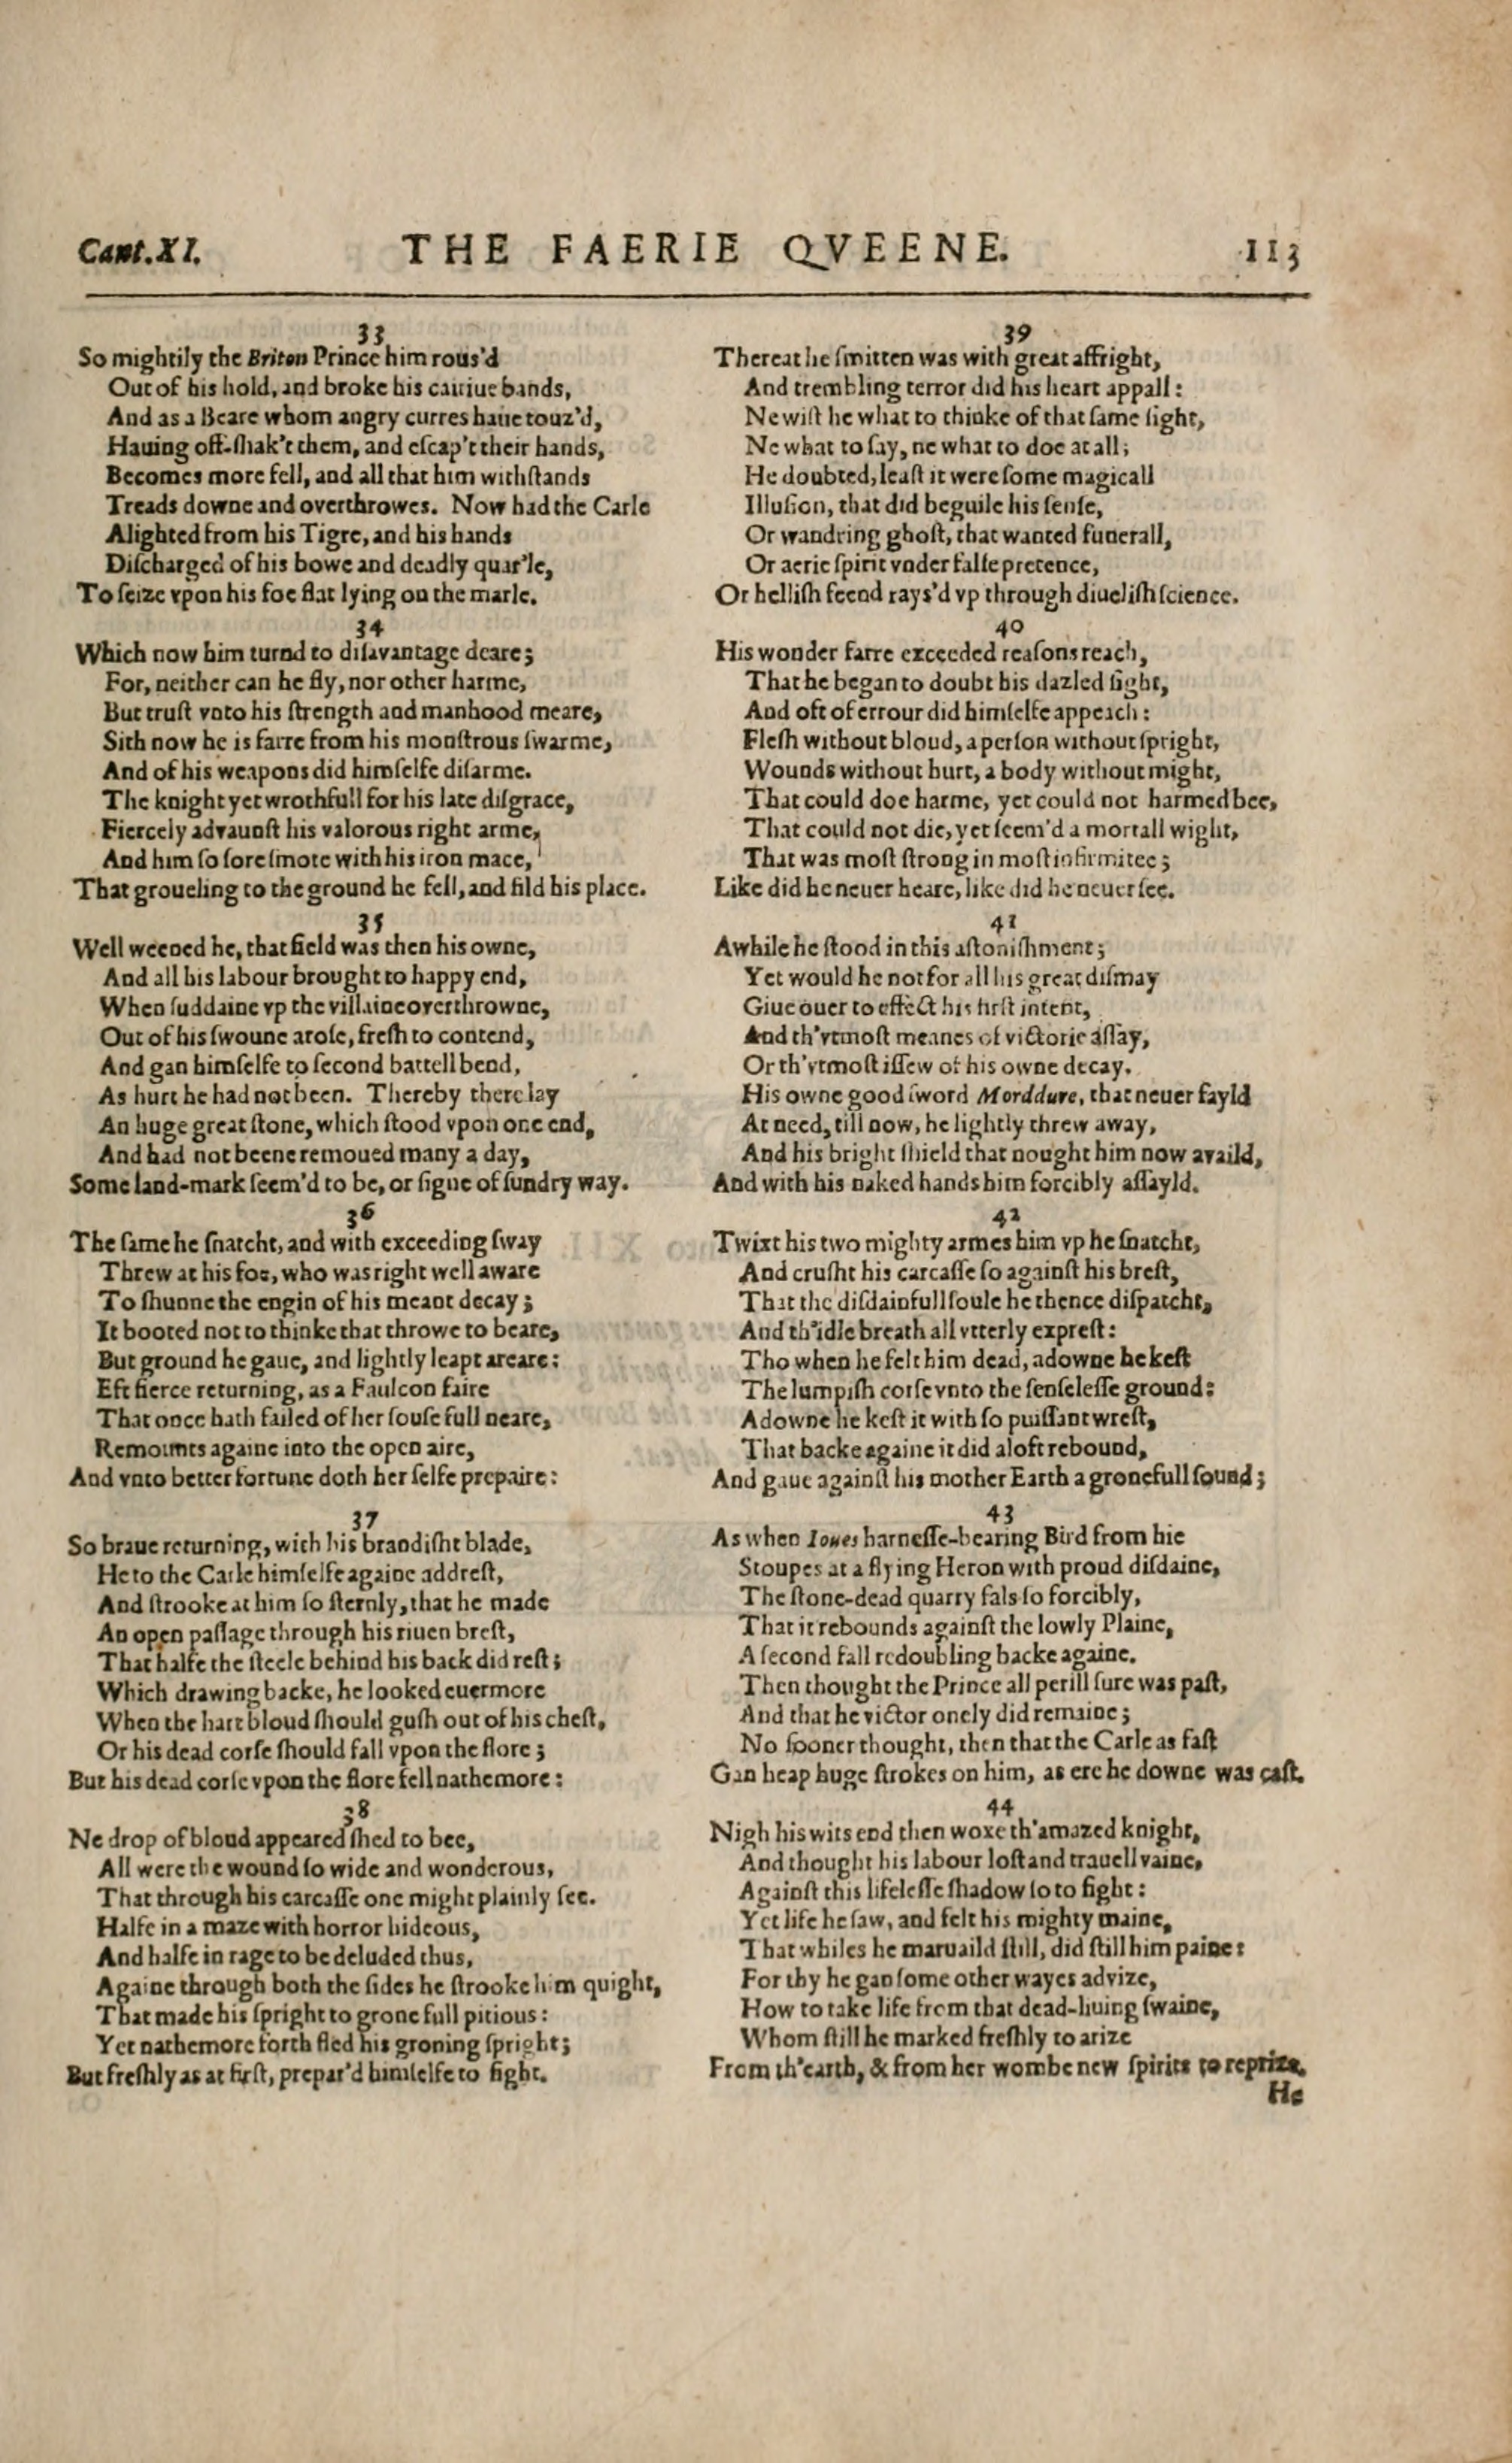 Cant. XI.
THE FAERIE QVEENE.
113
33
So mightily the Briton Prince him rous'd
Out of his hold, and broke his cauiue bands,
And as a Beare whom angry curres haue touz'd,
Hauing off-ſhak't them, and eſcap't their hands,
Becomes more fell, and all that him withſtands
Treads downe and overthrowes. Now had the Carle
Alighted from his Tigre, and his hands
Diſcharged of his bowe and deadly quar'le,
To ſeize vpon his foe flat lying on the marle.
34
Which now him turnd to diſavantage deare;
For, neither can he fly, nor other harme,
But truſt vnto his ſtrength and manhood meare,
Sith now he is farre from his monſtrous ſwarme,
And of his weapons did himſelfe diſarme.
The knight yet wrothfull for his late diſgrace,
Fiercely advaunſt his valorous right arme,
And him ſo ſore ſmote with his iron mace,
That groueling to the ground he fell, and fild his place.
35
Well weened he, that field was then his owne,
And all his labour brought to happy end,
When ſuddaine vp the villaine overthrowne,
Out of his ſwoune aroſe, freſh to contend,
And gan himſelfe to ſecond battell bend,
As hurt he had not been. Thereby there lay
An huge great ſtone, which ſtood vpon one end,
And had not beene remoued many a day,
Some land-mark ſeem'd to be, or ſigne of ſundry way.
36
The ſame he ſnatcht, and with exceeding ſway
Threw at his foe, who was right well aware
To ſhunne the engin of his meant decay;
It booted not to thinke that throwe to beare,
But ground he gaue, and lightly leapt areare:
Eft fierce returning, as a Faulcon faire
That once hath failed of her ſouſe full neare,
Remounts againe into the open aire,
And vnto better fortune doth her ſelfe prepaire:
37
So braue returning, with his brandiſht blade,
He to the Carle himſelfe againe addreſt,
And ſtrooke at him ſo ſternly, that he made
An open paſſage through his riuen breſt,
That halfe the ſteele behind his back did reſt;
Which drawing backe, he looked euermore
When the hart bloud ſhould guſh out of his cheſt,
Or his dead corſe ſhould fall vpon the flore;
But his dead corſe vpon the flore fell nathemore:
38
Ne drop of bloud appeared ſhed to bee,
All were the wound ſo wide and wonderous,
That through his carcaſſe one might plainly ſee.
Halfe in a maze with horror hideous,
And halfe in rage to be deluded thus,
Againe through both the ſides he ſtrooke him quight,
That made his ſpright to grone full pitious:
Yet nathemore forth fled his groning ſpright;
But freſhly as at firſt, prepar'd himſelfe to fight.
39
Thereat he ſmitten was with great affright,
And trembling terror did his heart appall:
Ne wiſt he what to thinke of that ſame ſight,
Ne what to ſay, ne what to doe at all;
He doubted, leaſt it were ſome magicall
Illuſion, that did beguile his ſenſe,
Or wandring ghoſt, that wanted funerall,
Or aerie ſpirit vnder falſe pretence,
Or helliſh feend rays'd vp through diueliſh ſcience.
40
His wonder farre exceeded reaſons reach,
That he began to doubt his dazled ſight,
And oft of errour did himſelfe appeach:
Fleſh without bloud, a perſon without ſpright,
Wounds without hurt, a body without might,
That could doe harme, yet could not harmed bee,
That could not die, yet ſeem'd a mortall wight,
That was moſt ſtrong in moſt infirmitee;
Like did he neuer heare, like did he neuer ſee.
41
Awhile he ſtood in this aſtoniſhment;
Yet would he not for all his great diſmay
Giue ouer to effect his firſt intent,
And th'vtmoſt meanes of victorie aſſay,
Or th'vtmoſt iſſew of his owne decay.
His owne good ſword Morddure, that neuer fayld
At need, till now, he lightly threw away,
And his bright ſhield that nought him now availd,
And with his naked hands him forcibly aſſayld.
42
Twixt his two mighty armes him vp he ſnatcht,
And cruſht his carcaſſe ſo againſt his breſt,
That the diſdainfull ſoule he thence diſpatcht,
And th'idle breath all vtterly expreſt:
Tho when he felt him dead, adowne he keſt
The lumpiſh corſe vnto the ſenſeleſſe ground:
Adowne he keſt it with ſo puiſſant wreſt,
That backe againe it did aloft rebound,
And gaue againſt his mother Earth a gronefull ſound;
43
As when Ioues harneſſe-bearing Bird from hie
Stoupes at a flying Heron with proud diſdaine,
The ſtone-dead quarry fals ſo forcibly,
That it rebounds againſt the lowly Plaine,
A ſecond fall redoubling backe againe.
Then thought the Prince all perill ſure was paſt,
And that he victor onely did remaine;
No ſooner thought, then that the Carle as faſt
Gan heap huge ſtrokes on him, as ere he downe was caſt.
44
Nigh his wits end then woxe th'amazed knight,
And thought his labour loſt and trauell vaine,
Againſt this lifeleſſe ſhadow ſo to fight:
Yet life he ſaw, and felt his mighty maine,
That whiles he maruaild ſtill, did ſtill him paine:
For thy he gan ſome other wayes advize,
How to take life from that dead-liuing ſwaine,
Whom ſtill he marked freſhly to arize
From th'earth, & from her wombe new ſpirits to reprize.
He